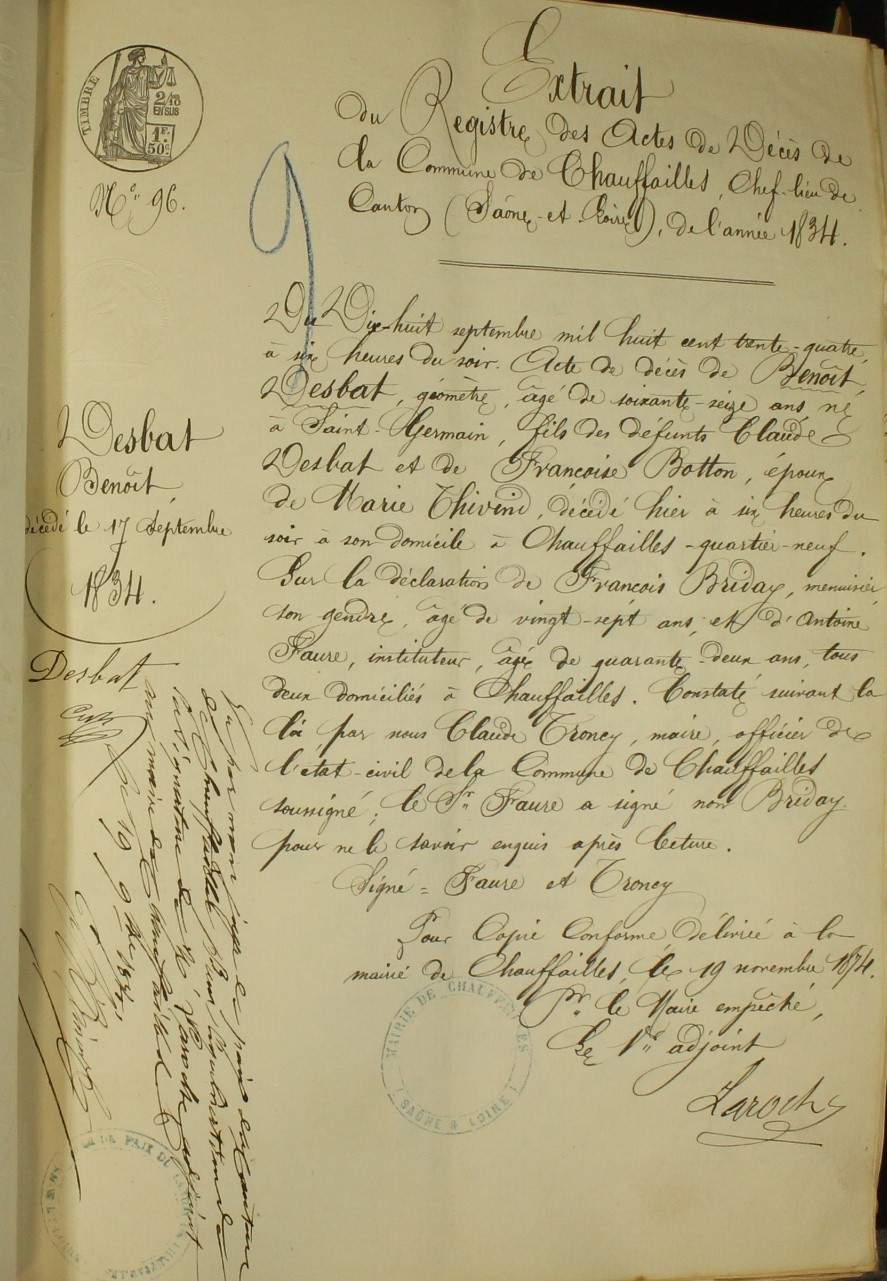 TIMBRE
2/10
EN SUS
1F.
50c.
N.° 96.
9
Extrait
du Registre des Actes de Décès de
la Commune de Chauffailles, Chef-lieu de
Canton (Saône-et-Loire), de l'année 1834.
Du Dix-huit septembre mil huit cent trente-quatre,
à six heures du soir. Acte de décès de Benoît
Desbat, géomètre, âgé de soixante-seize ans, né
à Saint-Germain, fils des défunts Claude
Desbat et de Francoise Botton, époux
de Marie Thivind, décédé hier à six heures du
soir à son domicile à Chauffailles-quartier-neuf.
Sur la déclaration de François Briday, menuisier,
son gendre, âgé de vingt-sept ans, et d'Antoine
Faure, instituteur, âgé de quarante-deux ans, tous
deux domiciliés à Chauffailles. Constaté suivant la
loi par nous Claude Troncy, maire, officier de
l'état-civil de la Commune de Chauffailles
soussigné; le Sr. Faure a signé non Briday
pour ne le savoir enquis après lecture.
Signé = Faure et Troncy
Pour Copie Conforme délivrée à la
mairie de Chauffailles, le 19 novembre 1874.
Pr. le Maire empêché,
Le 1er adjoint
Laroche
MAIRIE DE CHAUFFAILLES
(SAÔNE & LOIRE)
Desbat
Benoît
décédé le 17 Septembre
1834.
Desbat
Vu par nous juge de paix du Canton
de Chauffailles pour légalisation de
la signature de M. Laroche adjoint
au maire de Chauffailles
le 19 9bre 1874
DE PAIX DU